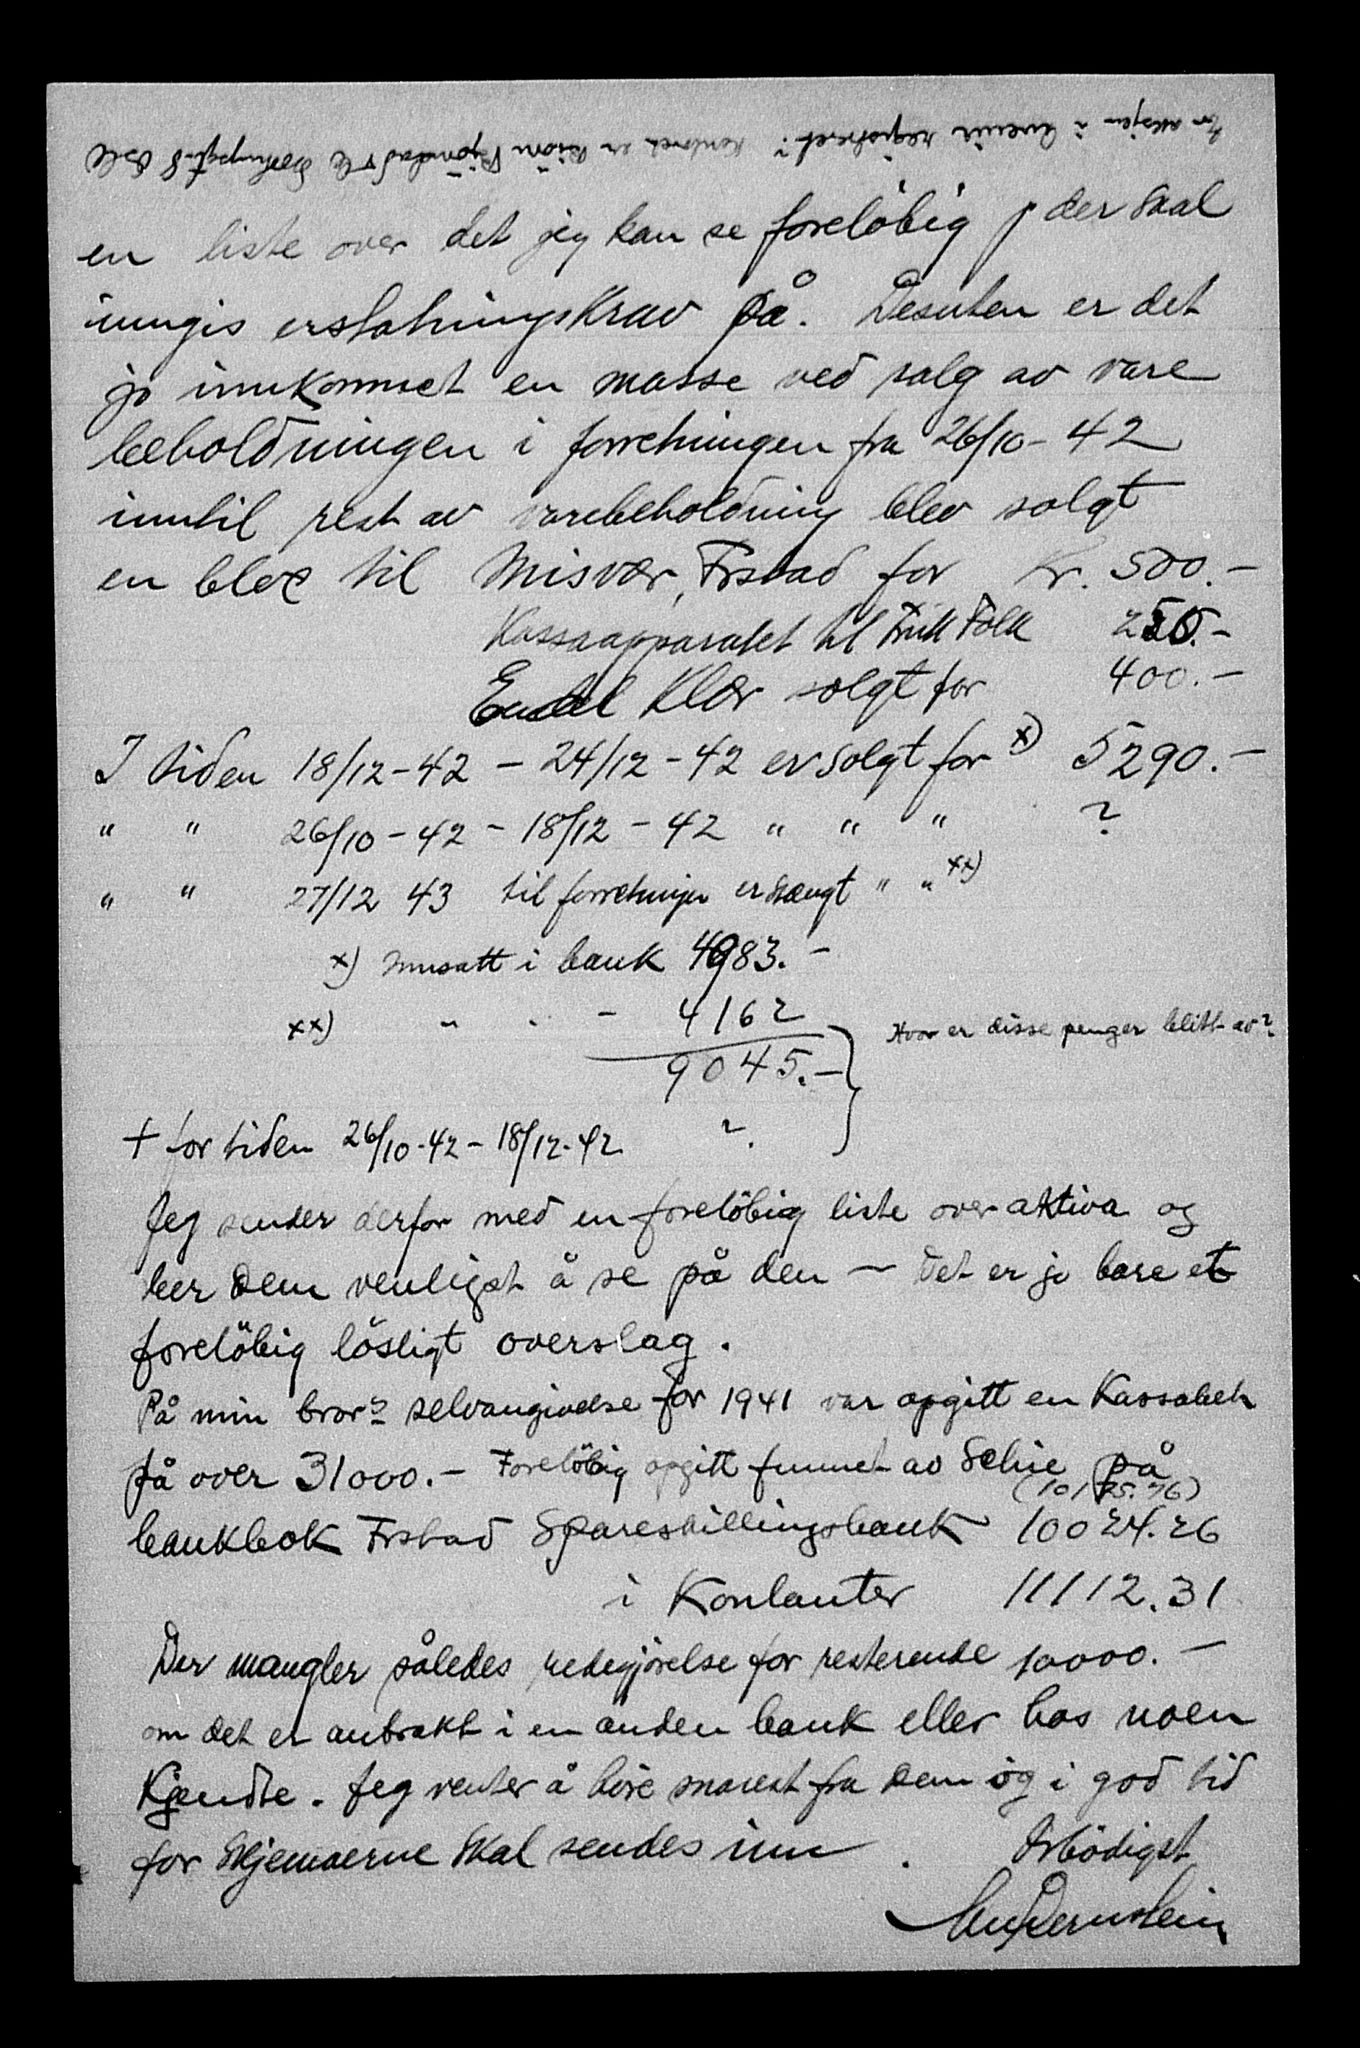 Er aksjen i Evenir registreret? Kontoret er Bjørn Bjørnstad & Co
en liste over det jeg kan se foreløbig p der skal
inngis erstatningskrav på. Desuten er det
jo innkommet en masse ved salg av vare
beholdningen i forretningen fra 26/10 - 42
inntil rest av varebeholdning blev solgt
en bloc til Misvær, Frstad for Kr. 500.-
Kassaapparatet til Frik Folk 250.-
Endel Klær solgt for 400.-
I tiden 18/12-42 - 24/12-42 er solgt for x) 5290.-
" " 26/10-42 - 18/12-42 " " " ?
" " 27/12 43 til forretningen er stængt " " xx)
x) innsatt i bank 4983.-
xx) " " - 4162
9045.- } Hvor er disse penger blitt av?
+ for tiden 26/10-42 - 18/12-42 ?
Jeg sender derfor med en foreløbig liste over aktiva og
ber Dem venligst å se på den - Det er jo bare et
foreløbig løsligt overslag.
På min brors selvangivelse for 1941 var opgitt en Kassabeh
på over 31000.- Foreløbig opgitt funnet av Schie på
(10125.76)
bankbok Frstad Spareskillingsbank 10024.26
i Kontanter 11112.31
Der mangler således redegjørelse for resterende 10000.-
om det er anbrakt i en anden bank eller hos noen
Kjendte. Jeg venter å høre snarest fra Dem og i god tid
før Skjemaerne skal sendes inn. Ærbødigst